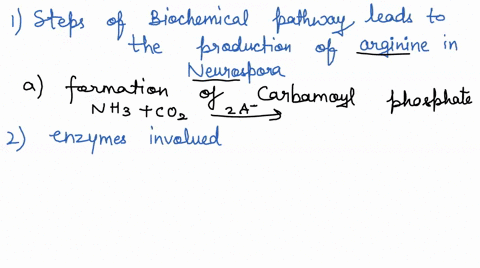 1) Steps of Biochemical pathway leads to
the production of arginine in
Neurospora
a) formation of Carbamoyl phosphate
NH3 + CO2 2A-
2) enzymes involued